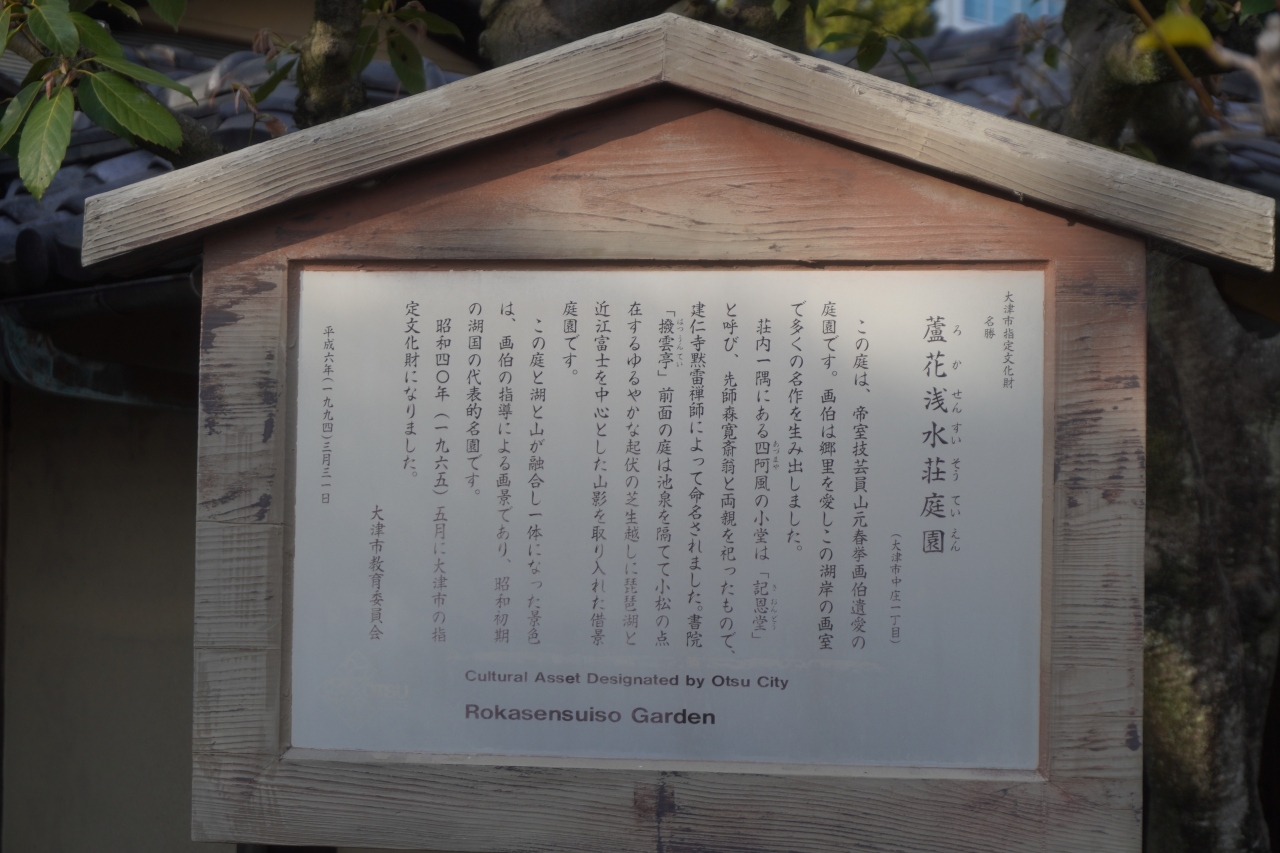 大津市指定文化財
名勝
蘆花浅水荘庭園
ろかせんすいそうていえん
(大津市中庄一丁目)
この庭は、帝室技芸員山元春挙画伯遺愛の
庭園です。画伯は郷里を愛しこの湖岸の画室
で多くの名作を生み出しました。
荘内一隅にある四阿風の小堂は「記恩堂」
あづまや
きおんどう
と呼び、先師森寛斎翁と両親を祀ったもので、
建仁寺黙雷禅師によって命名されました。書院
「撥雲亭」前面の庭は池泉を隔てて小松の点
在するゆるやかな起伏の芝生越しに琵琶湖と
近江富士を中心とした山影を取り入れた借景
庭園です。
この庭と湖と山が融合し一体になった景色
は、画伯の指導による画景であり、昭和初期
の湖国の代表的名園です。
昭和四〇年(一九六五)五月に大津市の指
定文化財になりました。
大津市教育委員会
平成六年(一九九四)三月三一日
Cultural Asset Designated by Otsu City
Rokasensuiso Garden